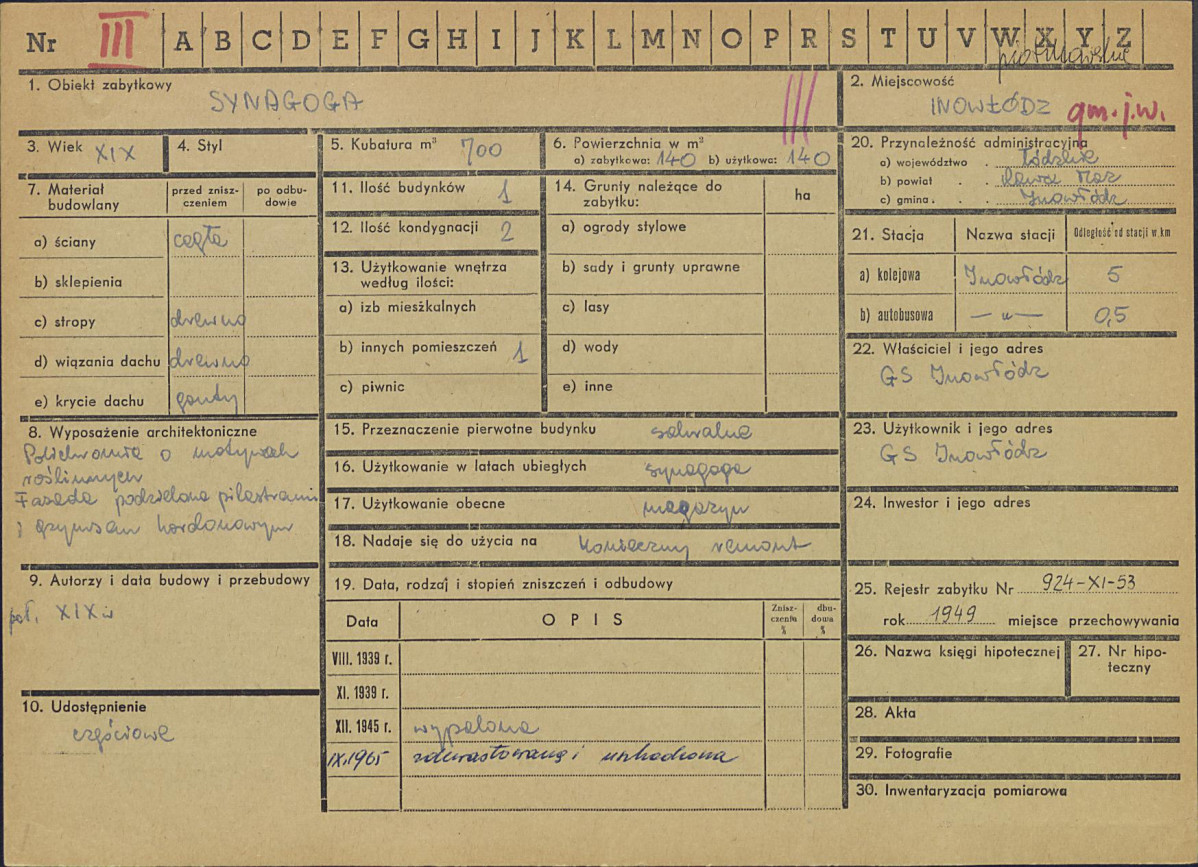 Nr III A B C D E F G H I J K L M N O P R S T U V W X Y Z
piotrkowskie
1. Obiekt zabytkowy
SYNAGOGA
III
2. Miejscowość
INOWŁÓDZ gm. j.w.
3. Wiek XIX
4. Styl
5. Kubatura m³ 700
6. Powierzchnia w m²
a) zabytkowa: 140 b) użytkowa: 140
7. Materiał budowlany
przed zniszczeniem
po odbudowie
a) ściany cegła
b) sklepienia
c) stropy drewno
d) wiązania dachu drewno
e) krycie dachu gonty
8. Wyposażenie architektoniczne
Polichromia o motywach
roślinnych
Fasada podzielona pilastrami
i gzymsem kordonowym
9. Autorzy i data budowy i przebudowy
poł. XIX w
10. Udostępnienie
częściowe
11. Ilość budynków 1
12. Ilość kondygnacji 2
13. Użytkowanie wnętrza
według ilości:
a) izb mieszkalnych
b) innych pomieszczeń 1
c) piwnic
14. Grunty należące do
zabytku:
ha
a) ogrody stylowe
b) sady i grunty uprawne
c) lasy
d) wody
e) inne
15. Przeznaczenie pierwotne budynku sakralne
16. Użytkowanie w latach ubiegłych synagoga
17. Użytkowanie obecne magazyn
18. Nadaje się do użycia na konieczny remont
19. Data, rodzaj i stopień zniszczeń i odbudowy
Data
OPIS
Zniszczenia %
dbudowa %
VIII. 1939 r.
XI. 1939 r.
XII. 1945 r. wypalona
IX.1965 zdewastowana i uszkodzona
20. Przynależność administracyjna
a) województwo . Łódzkie
b) powiat . . Rawa Maz
c) gmina . . . Inowłódz
21. Stacja
Nazwa stacji
Odległość od stacji w km
a) kolejowa Inowłódz 5
b) autobusowa — „ — 0,5
22. Właściciel i jego adres
GS Inowłódz
23. Użytkownik i jego adres
GS Inowłódz
24. Inwestor i jego adres
25. Rejestr zabytku Nr 924-XI-53
rok 1949 miejsce przechowywania
26. Nazwa księgi hipotecznej
27. Nr hipoteczny
28. Akta
29. Fotografie
30. Inwentaryzacja pomiarowa